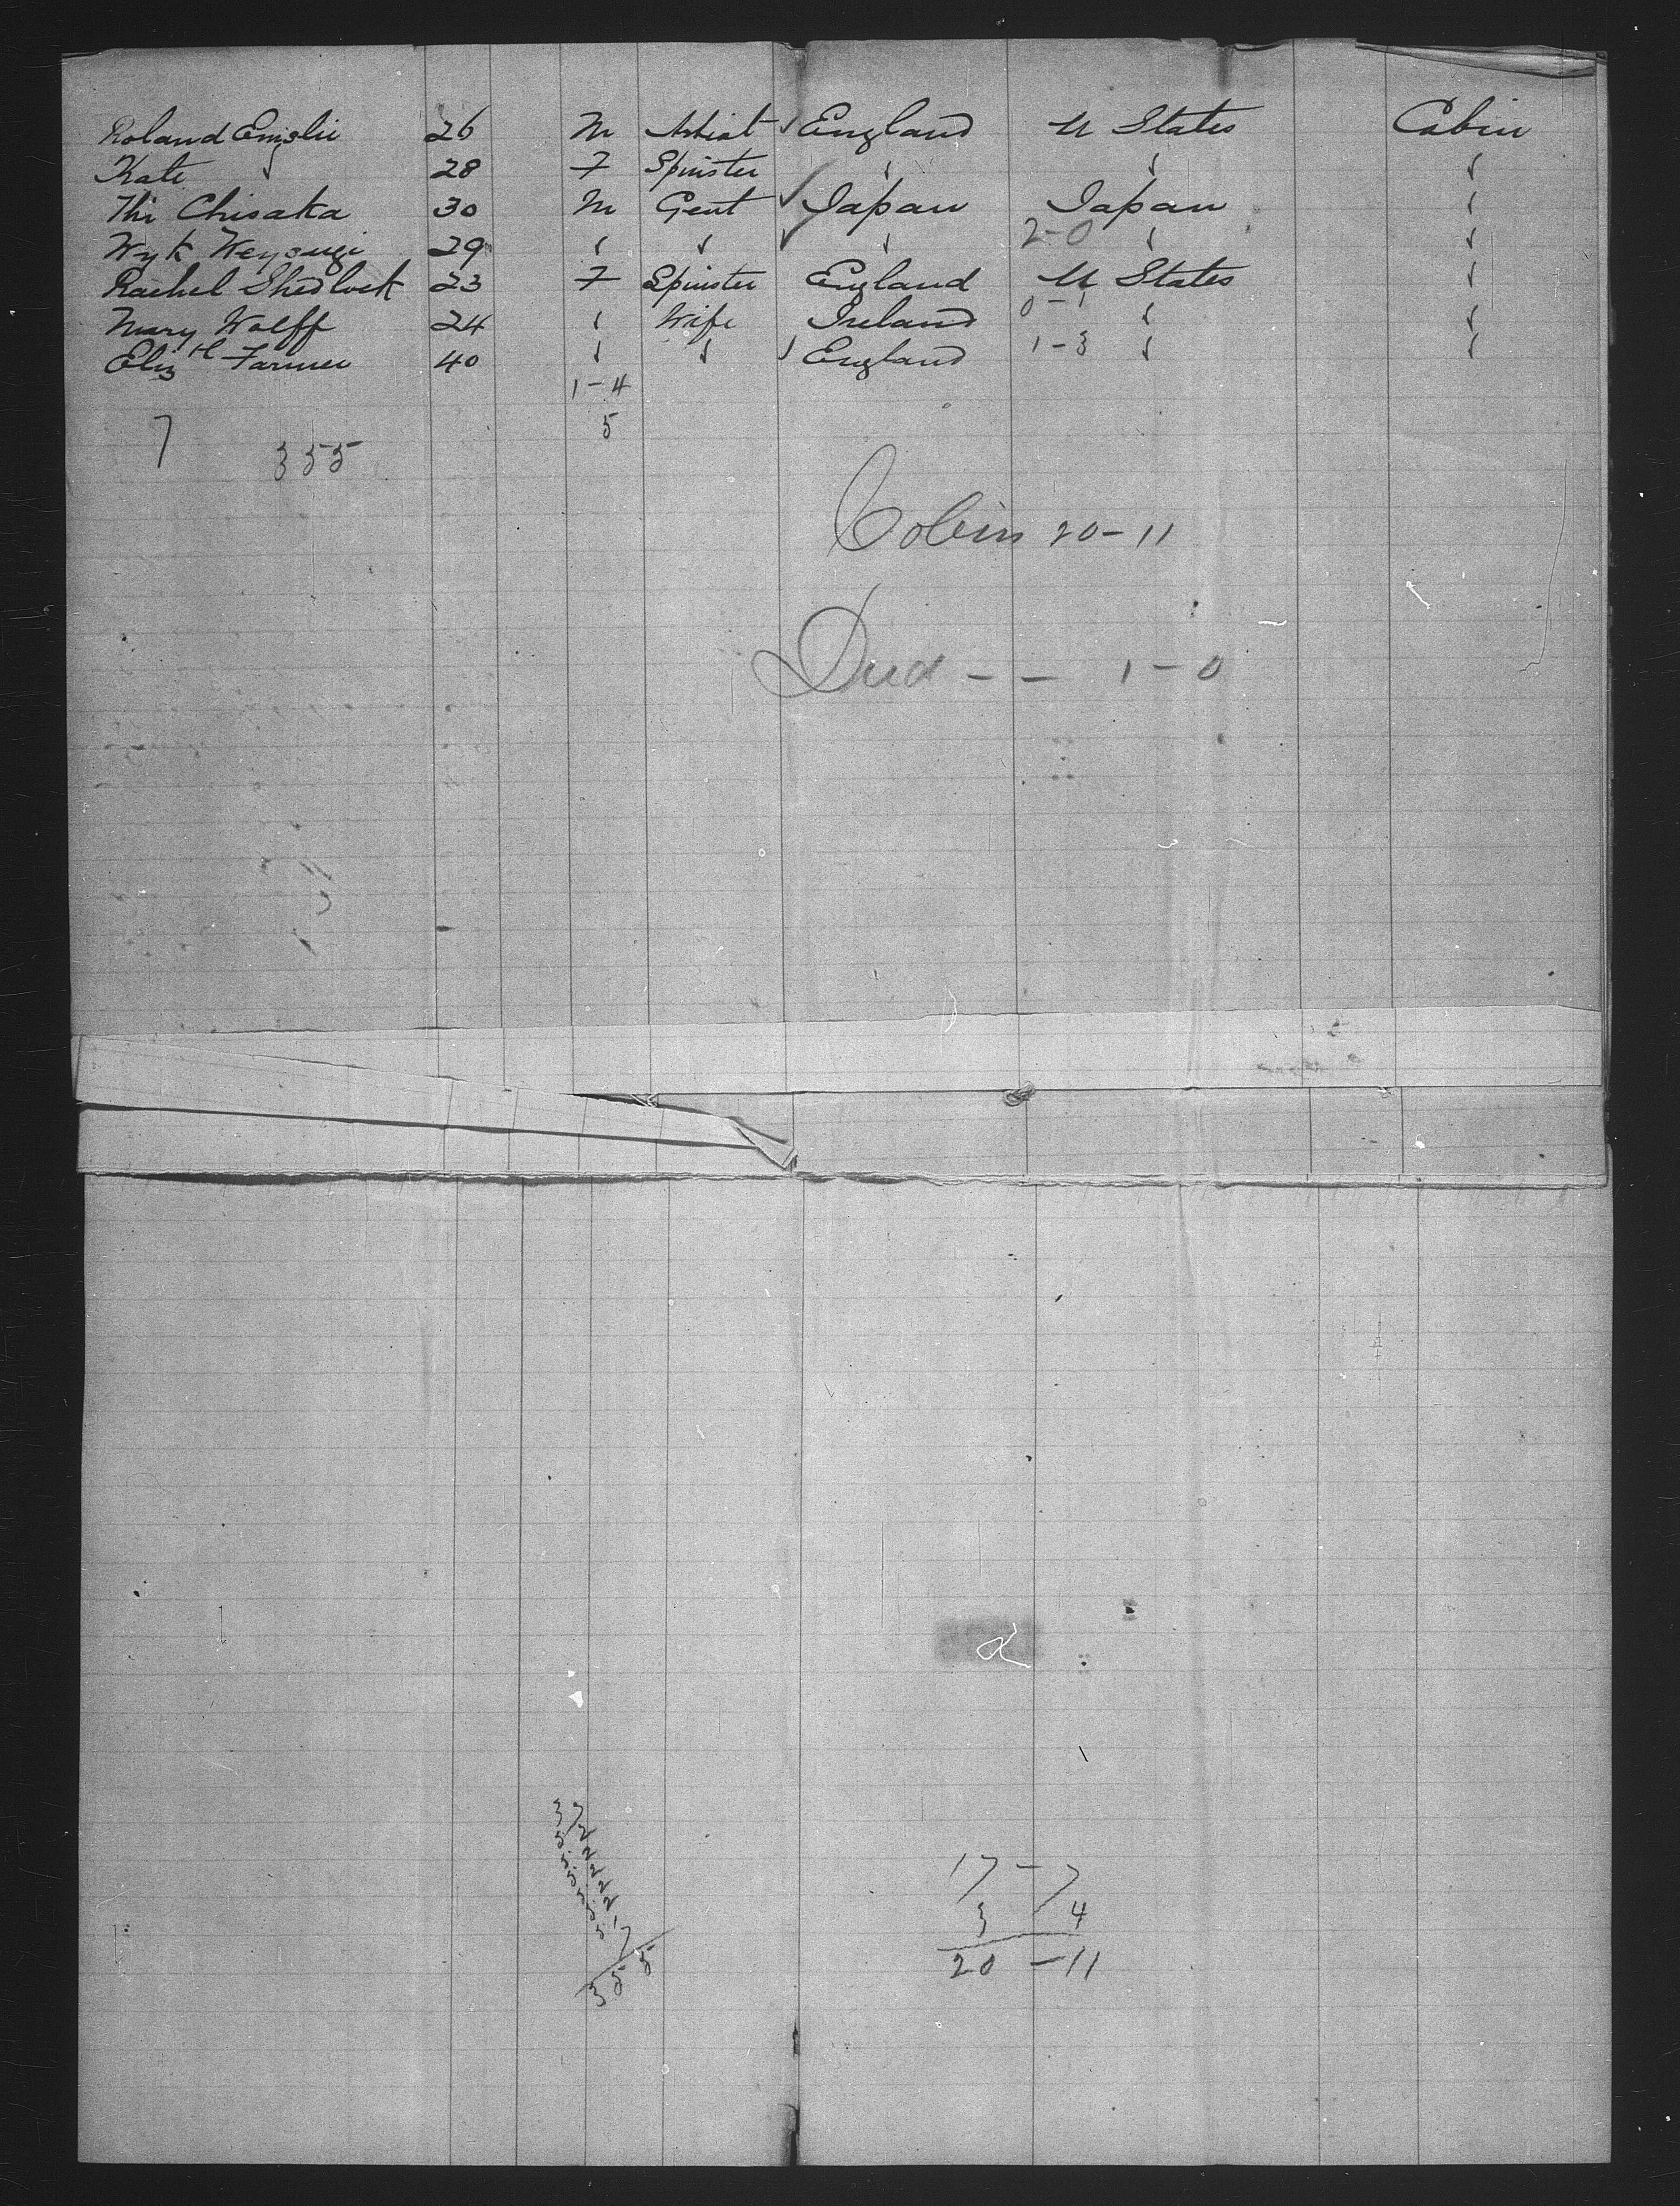 Roland Emslie 26 M Artist ✓ England U States Cabin
Kate ✓ 28 F Spinster ✓ ✓ ✓
Thi Chisaka 30 M Gent ✓ Japan Japan ✓
Wyk Weysugi 29 ✓ ✓ ✓ ✓ 2-0 ✓ ✓
Rachel Shedlock 23 F Spinster England U States ✓
Mary Wolff 24 ✓ Wife Ireland 0-1 ✓ ✓
Eliz th Farmer 40 ✓ ✓ ✓ England 1-3 ✓ ✓
1-4
7 5
355
Cabin 20-11
Died - - 1-0
17-7
3 4
20-11
7
355